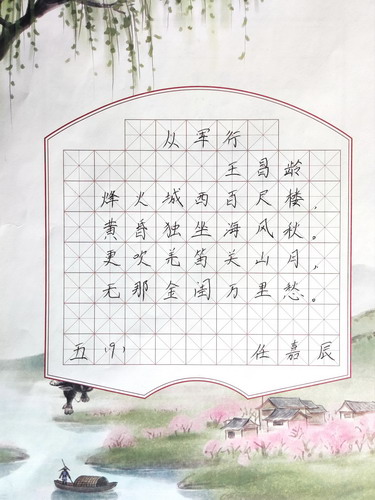 从军行
王昌龄
烽火城西百尺楼，
黄昏独坐海风秋。
更吹羌笛关山月，
无那金闺万里愁。
五（9） 任嘉辰